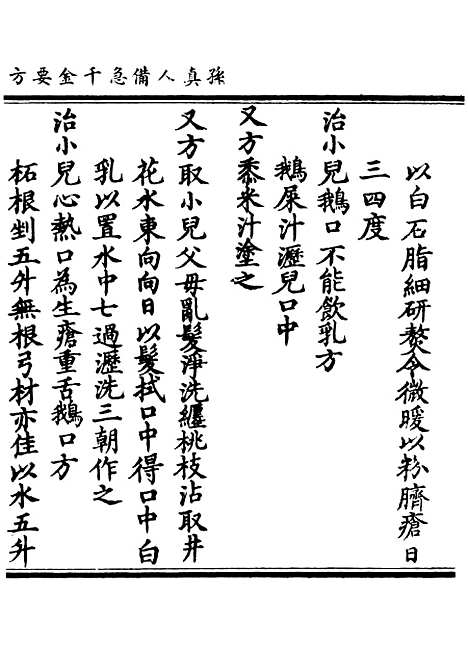 孫真人備急千金要方
以白石脂細研熬令微暖以粉臍瘡日
三四度
治小兒鵝口不能飲乳方
鵝屎汁瀝兒口中
又方黍米汁塗之
又方取小兒父母亂髮淨洗纏桃枝沾取井
花水東向向日以髮拭口中得口中白
乳以置水中七過瀝洗三朝作之
治小兒心熱口為生瘡重舌鵝口方
柘根剉五升無根弓材亦佳以水五升